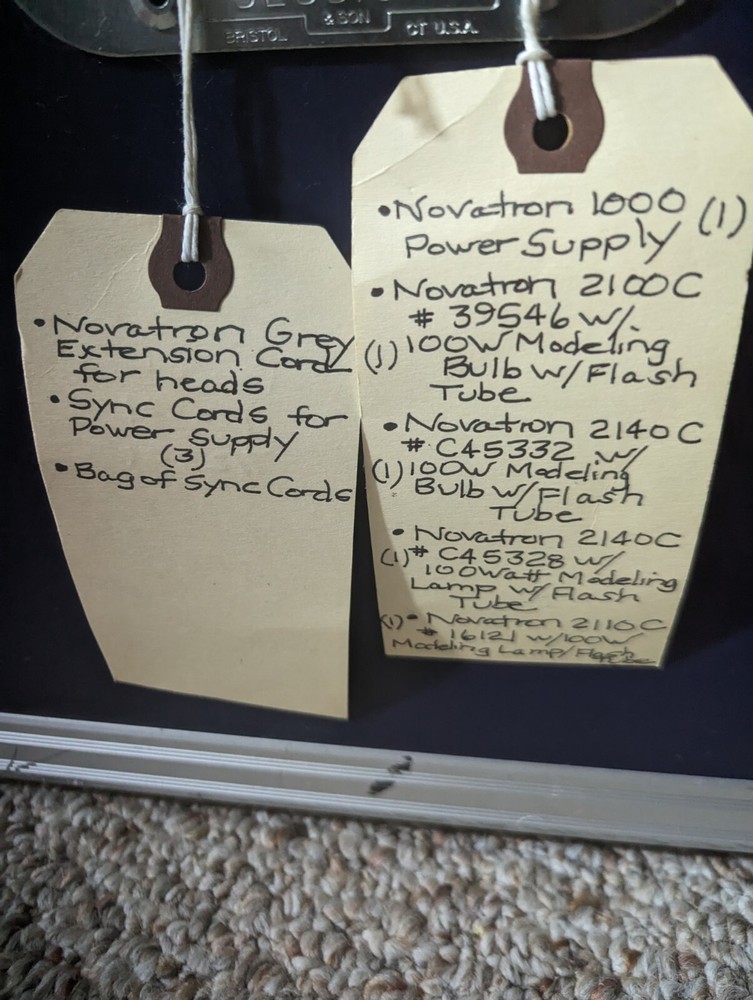 & SON
BRISTOL CT U.S.A.
•Novatron Grey
Extension Cord
for heads
•Sync Cords for
Power Supply
(3)
•Bag of Sync Cords
•Novatron 1000 (1)
Power Supply
•Novatron 2100C
# 39546 w/
(1) 100W Modeling
Bulb w/Flash
Tube
•Novatron 2140C
# C45332 w/
(1) 100W Modeling
Bulb w/Flash
Tube
•Novatron 2140C
(1) # C45328 w/
100Watt Modeling
Lamp w/Flash
Tube
(1)• Novatron 2110C
# 16121 w/100W
Modeling Lamp/Flash Tube